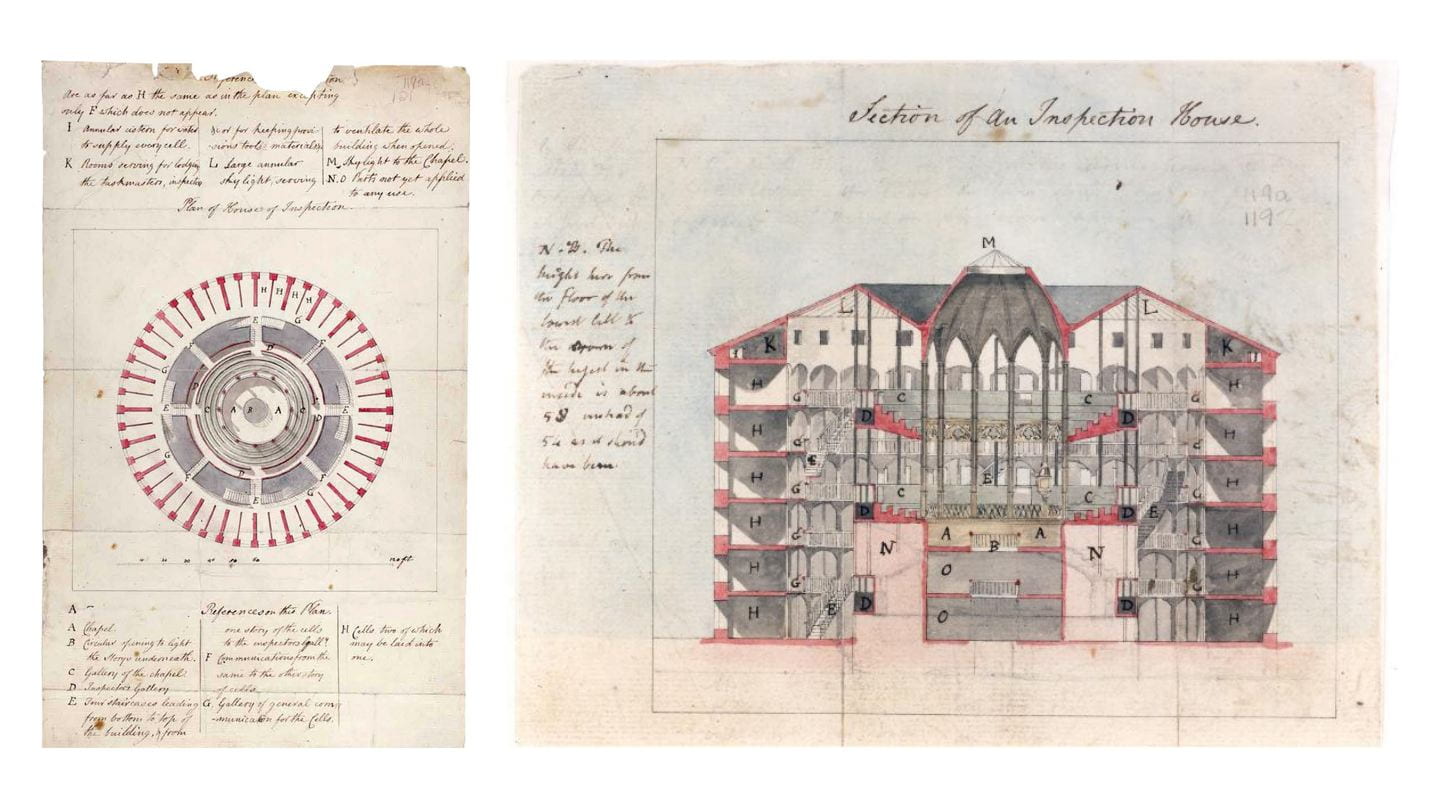 Are as far as H the same as in the plan excepting
only F which does not appear.
I Annular cistern for water
to supply every cell.
K Rooms serving for lodging
the taskmasters, inspectors
or for keeping provi-
sions tools materials
L Large annular
sky light, serving
to ventilate the whole
building when opened.
M Sky light to the Chapel.
N.O Parts not yet applied
to any use.
Plan of House of Inspection
H H H H
E G
F F
D
G
E C A B A C D E
G
F F
D
E G
References on this Plan.
A Chapel.
B Circular opening to light
the Story underneath.
C Gallery of the chapel
D Inspectors Gallery
E Four staircases leading
from bottom to top of
the building, & from
one story of the cells
to the inspectors gally
F Communications from the
same to the other story
of cells.
G. Gallery of general com
-munication for the Cells.
H Cells two of which
may be laid into
one.
Section of an Inspection House.
119a
119
N.B. The
height here from
the floor of the
lowest cell to
the crown of
the highest in the
inside is about
58 instead of
54 as it should
have been
M
L L
K K
H H
G C C G
D D
H H
G G
H E H
G C C G
D D E
H H
A A G
N B N
O
H H
G G
D D
H E O H